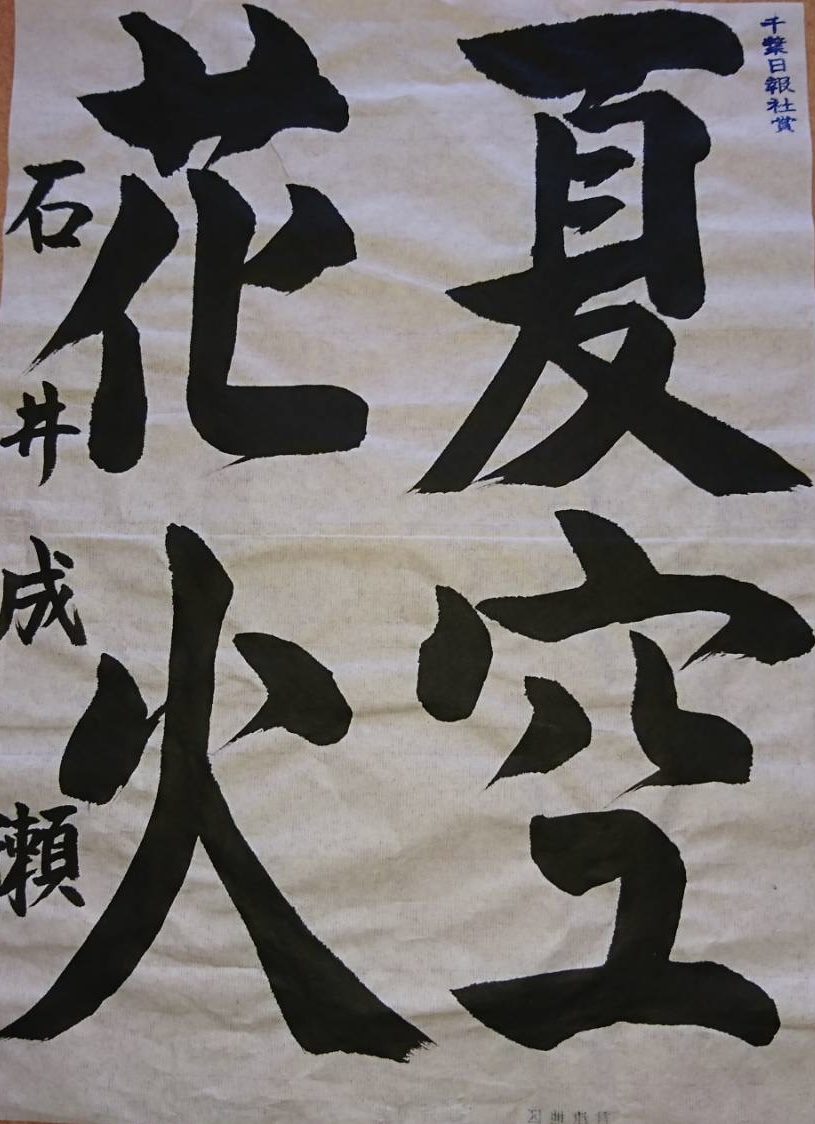 千葉日報社賞
夏空
花火
石井成瀬